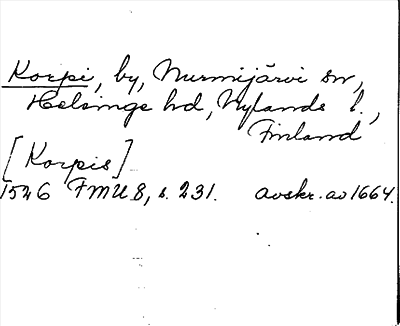 Korpi, by, Nurmijärvi sn,
Helsinge hd, Nylands l.,
Finland
[Korpis]
1546 FMU 8, s. 231. avskr. av 1664.